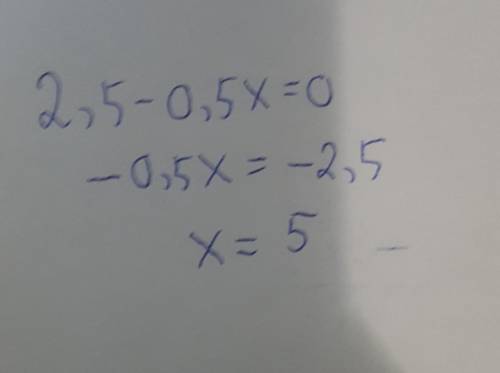 2,5-0,5x=0
-0,5x=-2,5
x=5